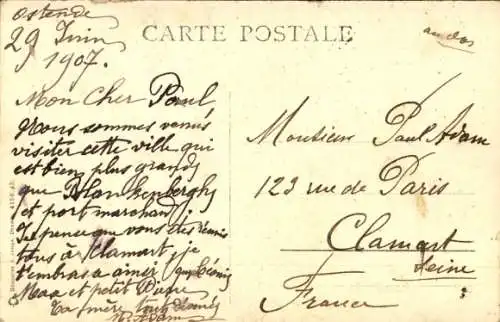 Ostende
29 Juin
1907.
CARTE POSTALE
au dos
Mon Cher Paul,
Nous sommes venus
visiter cette ville qui
est bien plus grande
que Blankenberghe
et port marchand
Je pense que vous êtes réunis
tous à Clamart, je
t'embrasse ainsi que
Max et petit Pierre
Ta mère
Monsieur Paul Adam
123 rue de Paris
Clamart
Seine
France